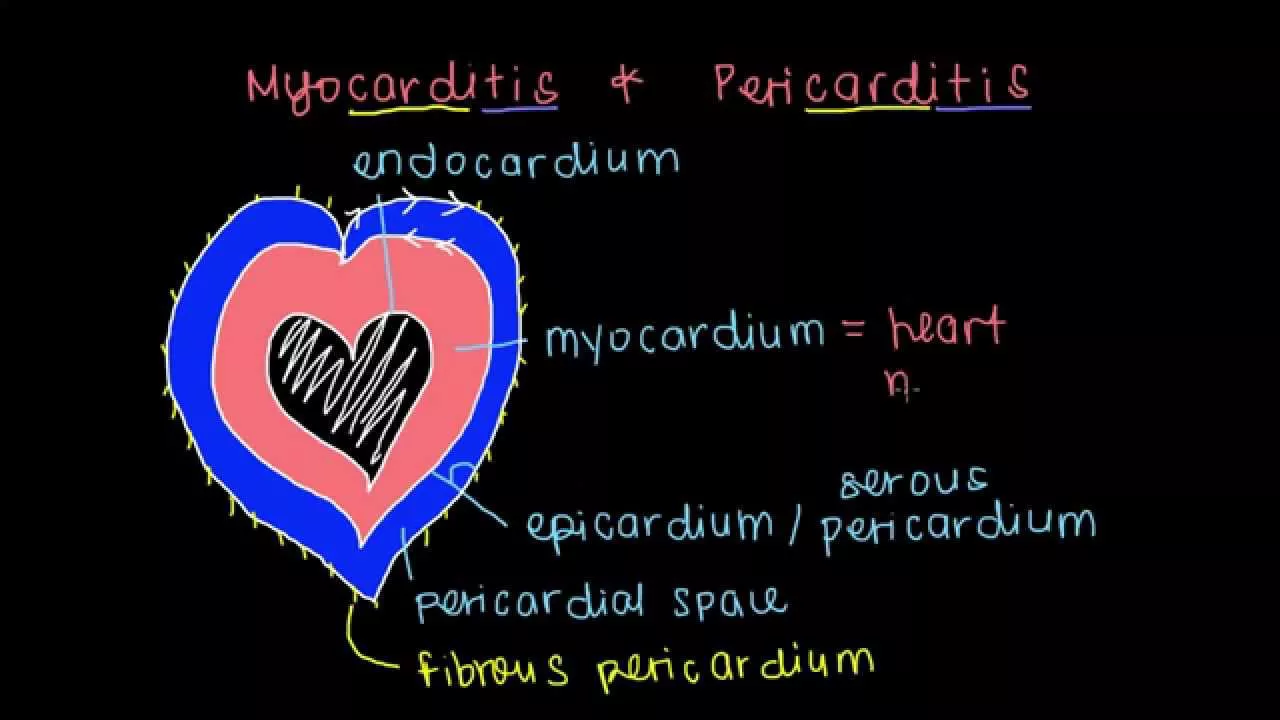 Myocarditis & Pericarditis
endocardium
myocardium = heart
m
serous
epicardium / pericardium
pericardial space
fibrous pericardium